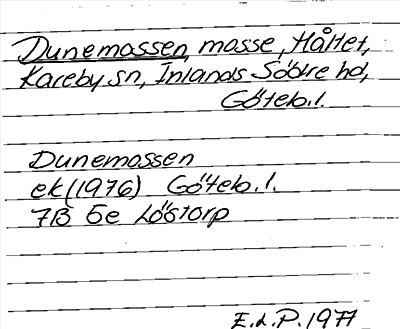 Dunemossen, mosse, Håltet,
Kareby sn, Inlands Södre hd,
Göteb. l.
Dunemossen
ek (1976) Göteb. l.
7B 6e Löstorp
E.L.P. 1977